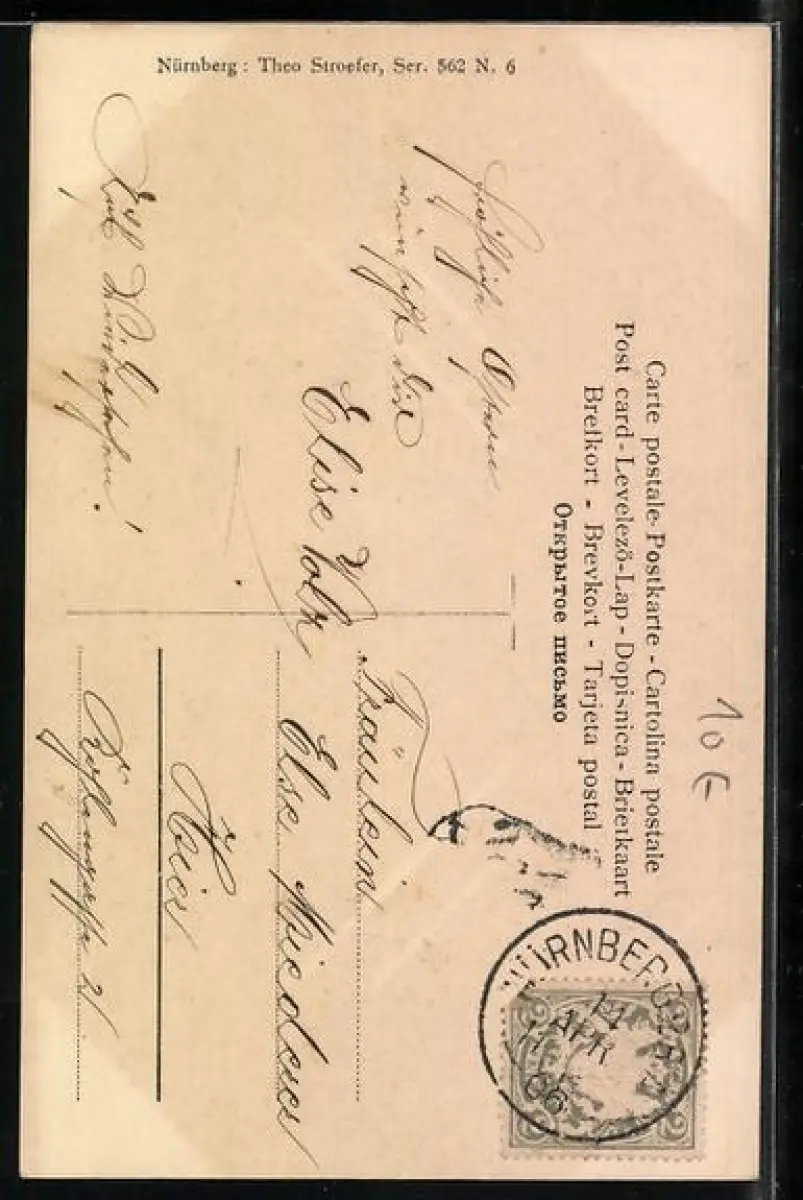 Nürnberg: Theo Stroefer, Ser. 562 N. 6
Carte postale-Postkarte-Cartolina postale
Post card-Levelező-Lap-Dopisnica-Briefkaart
Brefkort - Brevkort - Tarjeta postal
Открытое письмо
10 €
Fröhliche Ostern
wünscht Dir
Elise Volk
Fräulein
Else
Hier
21
NÜRNBERG 2
11 APR
06
2
2
2
2